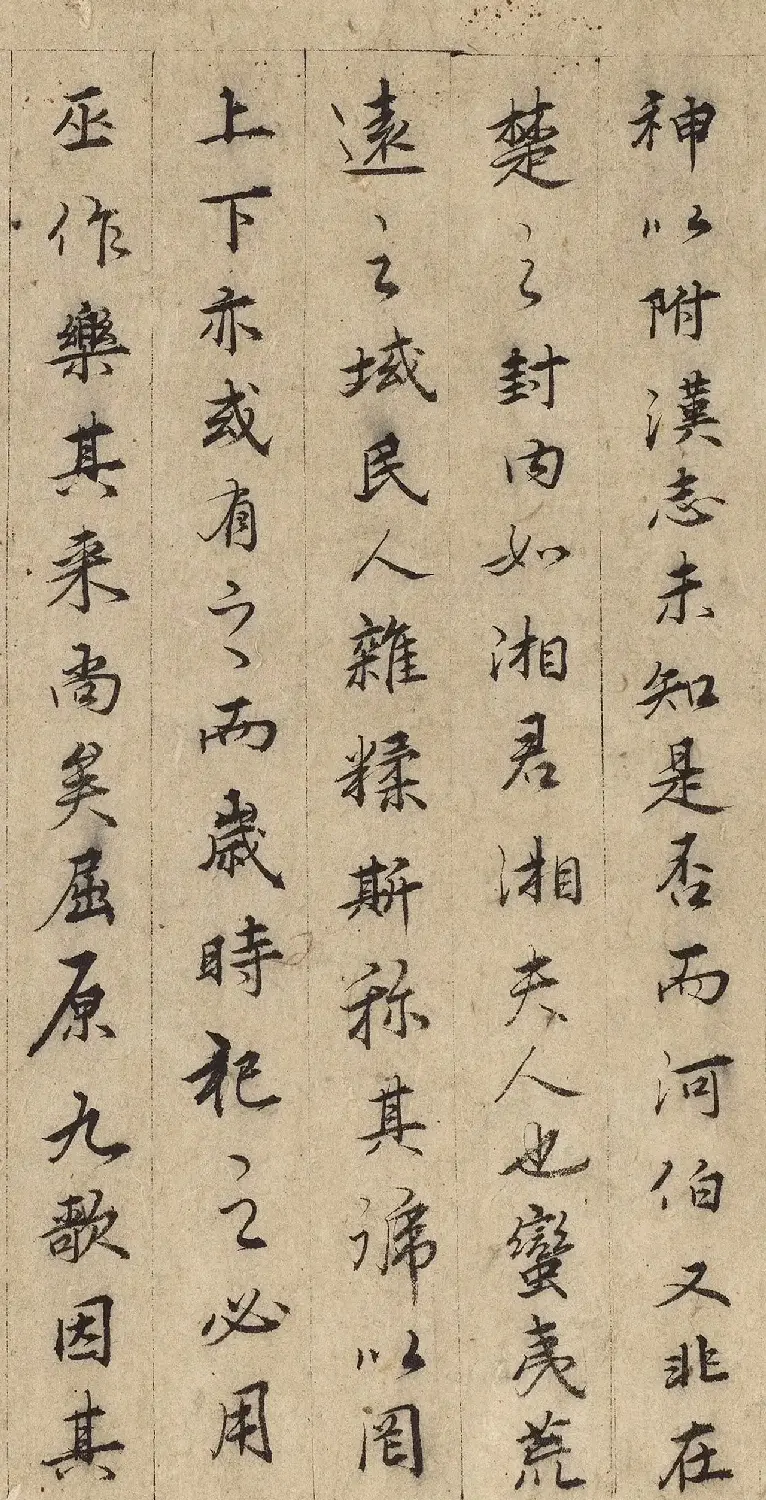 神以附漢志未知是否而河伯又非在
楚之封内如湘君湘夫人也蠻夷荒
遠之域民人雜糅斯称其號以罔
上下亦或有之而歲時祀之必用
巫作樂其来尚矣屈原九歌因其